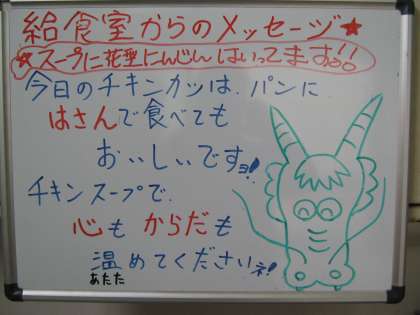 給食室からのメッセージ★
☆スープに花型にんじんはいってます!!
今日のチキンカツは、パンに
はさんで食べても
おいしいですヨ!
チキンスープで、
心もからだも
温めてくださいネ!
あたた